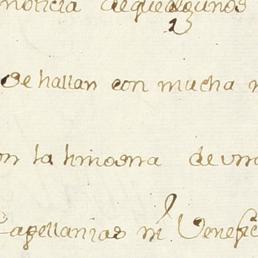 noticia dequealgunos
se hallan con mucha
on la limosna de un
Capellanias ni Venefic